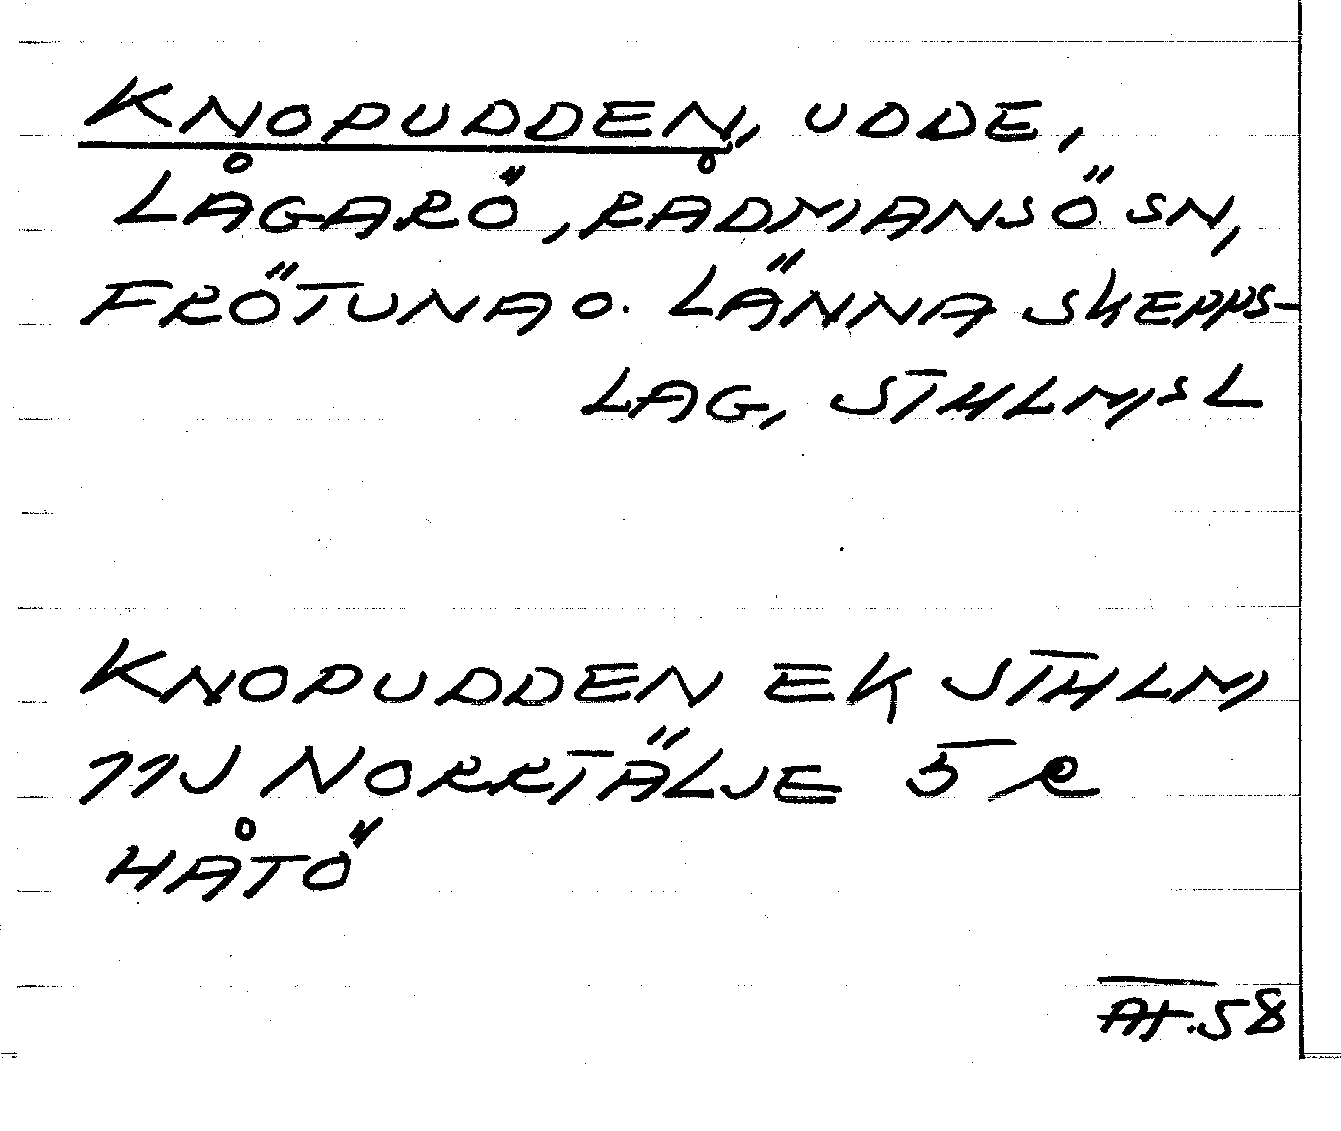 KNOPUDDEN, UDDE,
LÅGARÖ, RÅDMANSÖ SN,
FRÖTUNA O. LÄNNA SKEPPS-
LAG, STHLMS L
KNOPUDDEN EK STHLM
11J NORRTÄLJE 5 R
HÅTÖ
AH.58